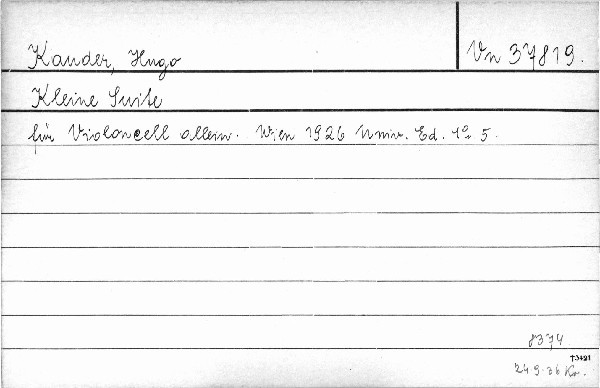 Kauder, Hugo
Vn 37819.
Kleine Suite
für Violoncell allein. Wien 1926 Univ. Ed. 4° 5.
8374
T3421
24 9.36 Kr.